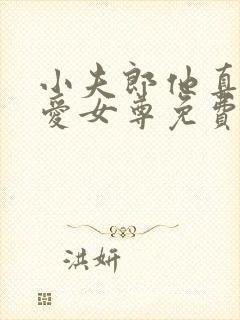 小夫郎他真
爱女尊免费
洪妍